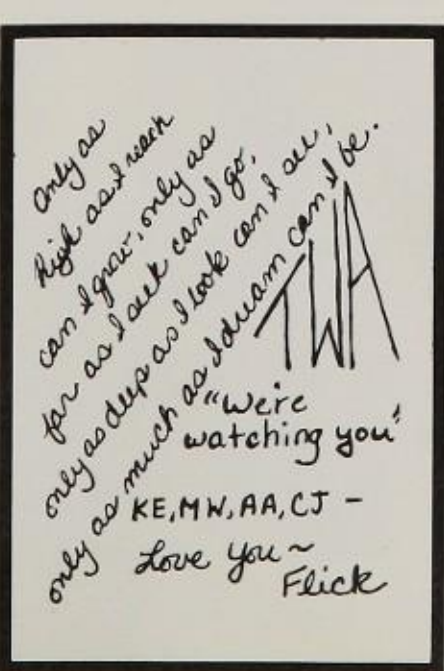 Only as
high as I reach
can I grow, only as
far as I seek can I go,
only as deep as I look can I see,
only as much as I dream can I be.
TWA
"We're
watching you"
KE, MW, AA, CJ -
Love you ~
Flick